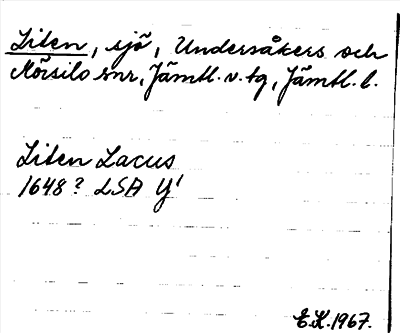 Liten, sjö, Undersåkers och
Mörsils snr, Jämtl. v. tg, Jämtl. l.
Liten Lacus
1648? LSA Y1
E.K. 1967.